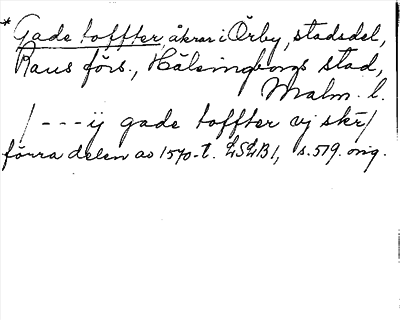 *Gade toffter, åkrar i Örby, stadsdel,
Raus förs., Hälsingborgs stad,
Malm. l.
/ - - - ij gade toffter vj skr̄ /
förra delen av 1570-t. LSLB1, s. 519. orig.